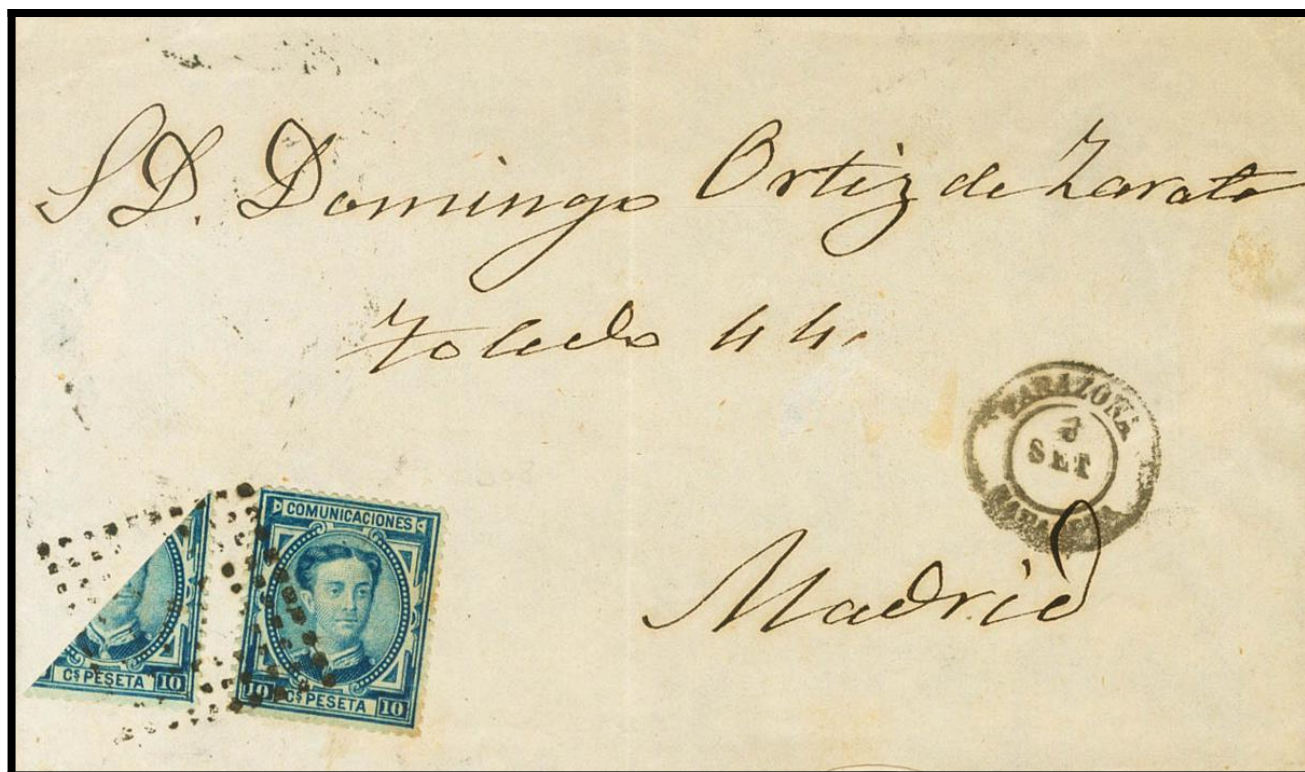 S D. Domingo Ortiz de Zarate
Toledo 44.
TARAZONA
SET
ZARAGOZA
COMUNICACIONES
Cs PESETA 10
10 Cs PESETA 10
Madrid